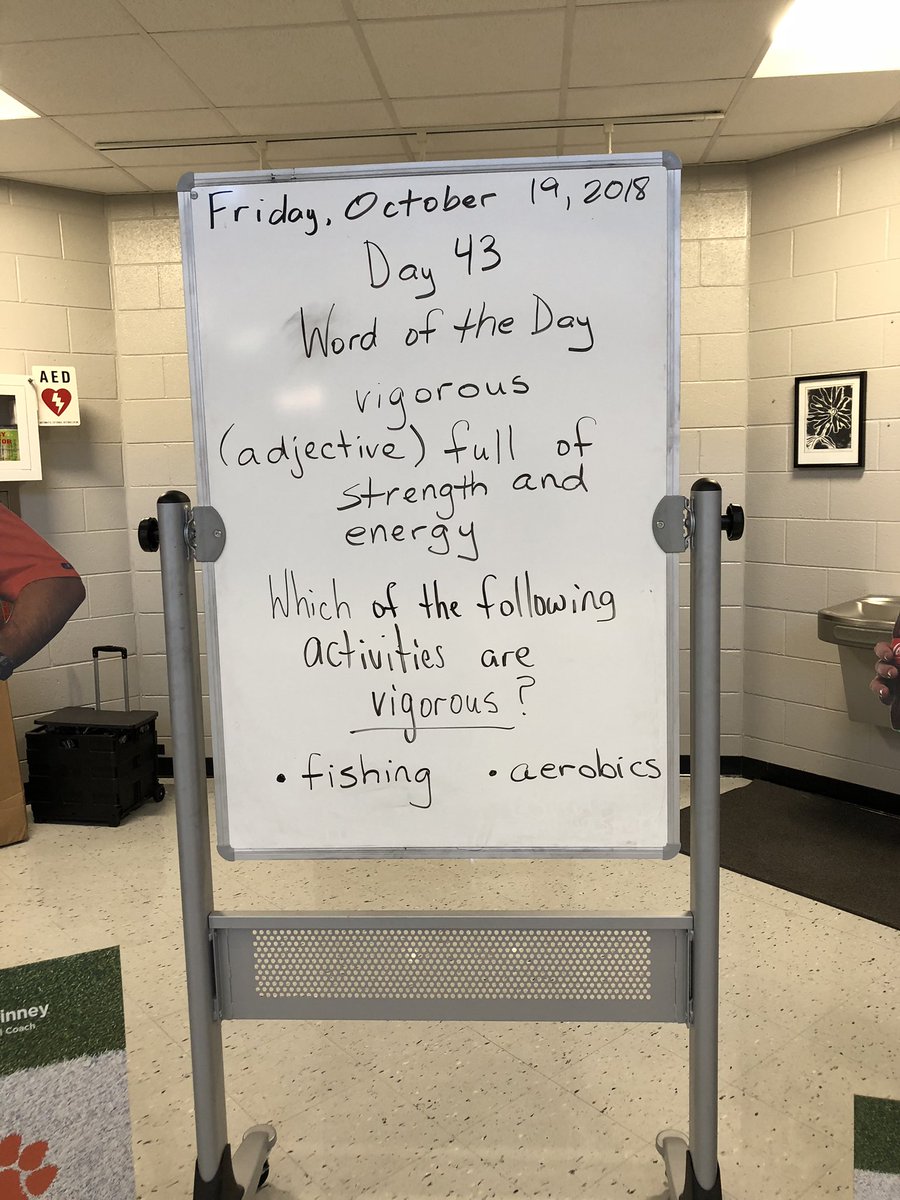 Friday, October 19, 2018
Day 43
Word of the Day
vigorous
(adjective) full of
strength and
energy
Which of the following
activities are
vigorous?
• fishing • aerobics
AED
inney
Coach